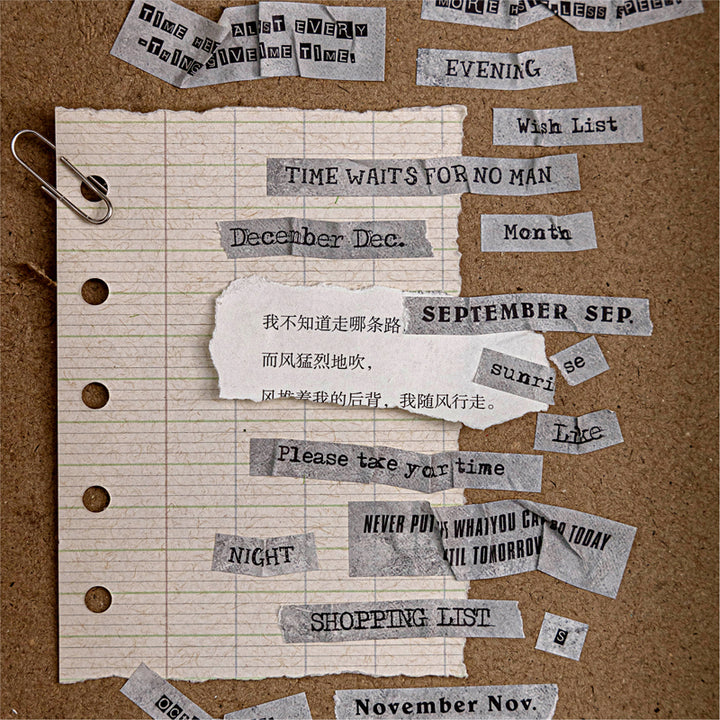 TIME HEALS ALMOST EVERY
-THING GIVE ME TIME.
MORE SPEED.
EVENING
Wish List
TIME WAITS FOR NO MAN
December Dec.
Month
SEPTEMBER SEP.
我不知道走哪条路
而风猛烈地吹，
风推着我的后背，我随风行走。
sunri
se
Like
Please take your time
NEVER PUT WHAT YOU CAN DO TODAY
TOMORROW
NIGHT
SHOPPING LIST
S
November Nov.